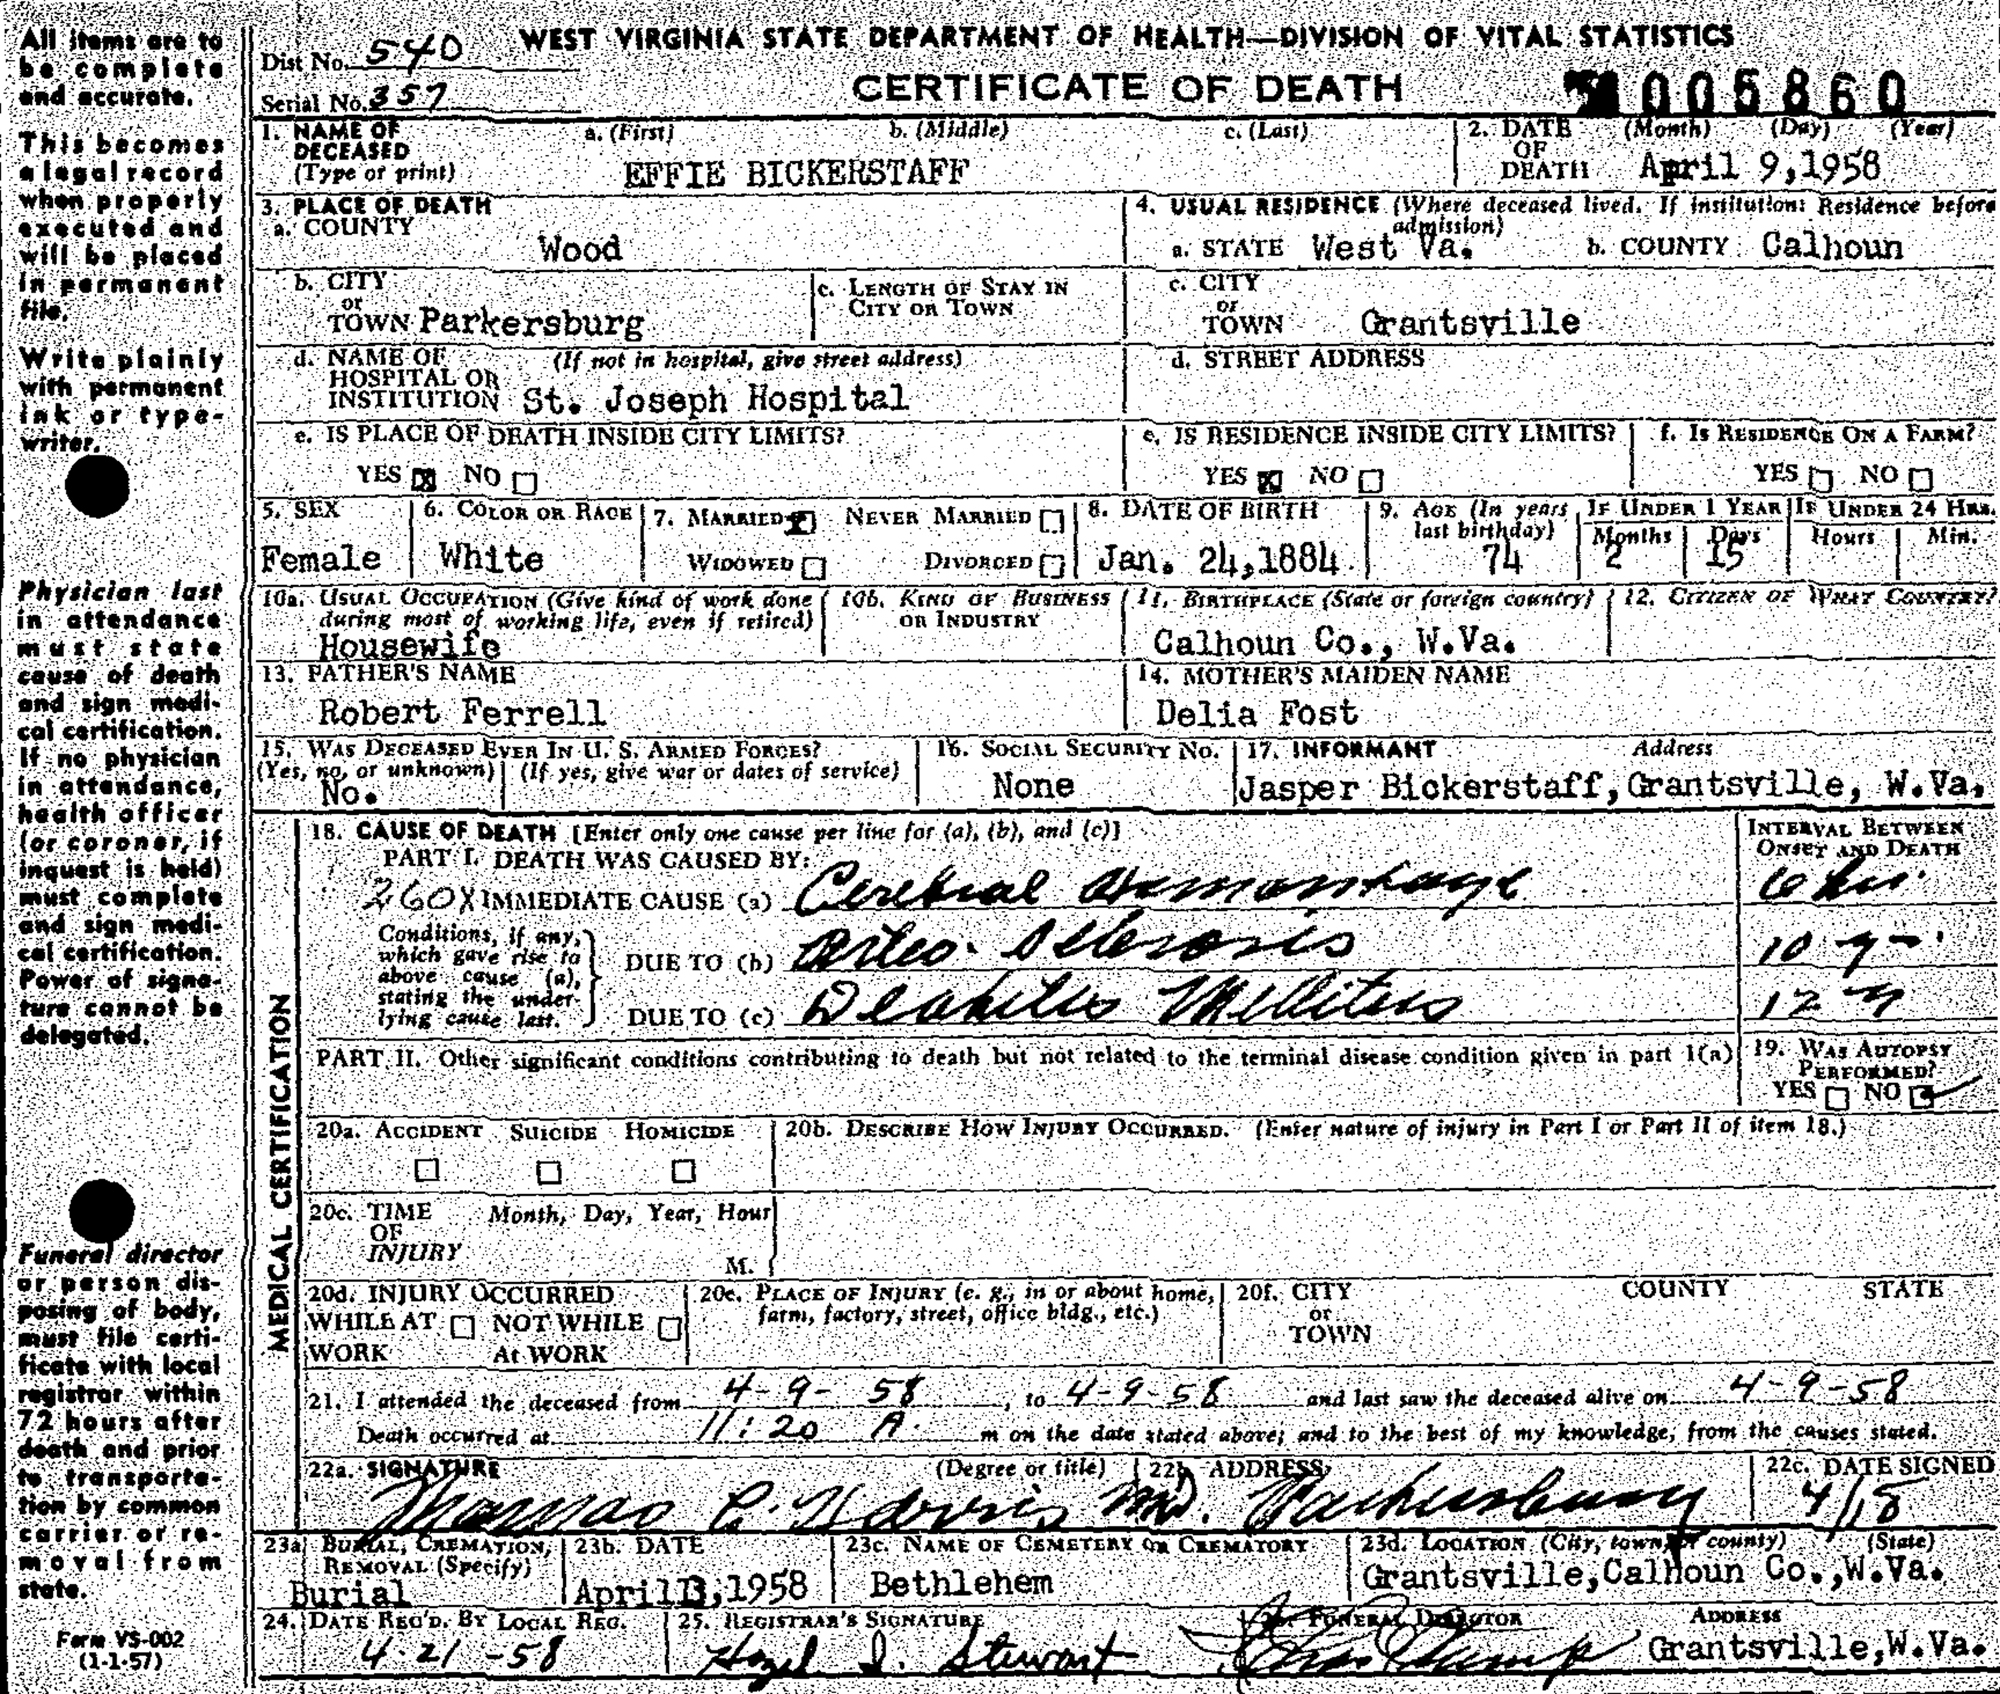 All items are to
be complete
and accurate.
This becomes
a legal record
when properly
executed and
will be placed
in permanent
file.
Write plainly
with permanent
ink or type-
writer.
Physician last
in attendance
must state
cause of death
and sign medi-
cal certification.
If no physician
in attendance,
health officer
(or coroner, if
inquest is held)
must complete
and sign medi-
cal certification.
Power of signa-
ture cannot be
delegated.
Funeral director
or person dis-
posing of body,
must file certi-
ficate with local
registrar within
72 hours after
death and prior
to transporta-
tion by common
carrier or re-
moval from
state.
Form VS-002
(1-1-57)
WEST VIRGINIA STATE DEPARTMENT OF HEALTH—DIVISION OF VITAL STATISTICS
Dist No. 540
CERTIFICATE OF DEATH
005860
Serial No. 357
1. NAME OF DECEASED (Type or print) a. (First) b. (Middle) c. (Last)
EFFIE BICKERSTAFF
2. DATE OF DEATH (Month) (Day) (Year)
April 9,1958
3. PLACE OF DEATH
a. COUNTY Wood
4. USUAL RESIDENCE (Where deceased lived. If institution: Residence before admission)
a. STATE West Va. b. COUNTY Calhoun
b. CITY or TOWN Parkersburg
c. LENGTH OF STAY IN CITY OR TOWN
c. CITY or TOWN Grantsville
d. NAME OF HOSPITAL OR INSTITUTION (If not in hospital, give street address)
St. Joseph Hospital
d. STREET ADDRESS
e. IS PLACE OF DEATH INSIDE CITY LIMITS?
YES X NO
e. IS RESIDENCE INSIDE CITY LIMITS?
YES X NO
f. IS RESIDENCE ON A FARM?
YES NO
5. SEX
Female
6. COLOR OR RACE
White
7. MARRIED NEVER MARRIED
WIDOWED DIVORCED
8. DATE OF BIRTH
Jan. 24,1884
9. AGE (In years last birthday)
74
IF UNDER 1 YEAR
Months Days
2 15
IF UNDER 24 HRS.
Hours Min.
10a. USUAL OCCUPATION (Give kind of work done during most of working life, even if retired)
Housewife
10b. KIND OF BUSINESS OR INDUSTRY
11. BIRTHPLACE (State or foreign country)
Calhoun Co., W.Va.
12. CITIZEN OF WHAT COUNTRY?
13. FATHER'S NAME
Robert Ferrell
14. MOTHER'S MAIDEN NAME
Delia Fost
15. WAS DECEASED EVER IN U. S. ARMED FORCES?
(Yes, no, or unknown) (If yes, give war or dates of service)
No.
16. SOCIAL SECURITY NO.
None
17. INFORMANT Address
Jasper Bickerstaff, Grantsville, W.Va.
MEDICAL CERTIFICATION
18. CAUSE OF DEATH [Enter only one cause per line for (a), (b), and (c)]
INTERVAL BETWEEN ONSET AND DEATH
PART I. DEATH WAS CAUSED BY:
260X IMMEDIATE CAUSE (a) Cerebral 6 hrs.
Conditions, if any, which gave rise to above cause (a), stating the underlying cause last.
DUE TO (b) 10
DUE TO (c) 12
PART II. Other significant conditions contributing to death but not related to the terminal disease condition given in part 1(a)
19. WAS AUTOPSY PERFORMED?
YES NO
20a. ACCIDENT SUICIDE HOMICIDE
20b. DESCRIBE HOW INJURY OCCURRED. (Enter nature of injury in Part I or Part II of item 18.)
20c. TIME OF INJURY Month, Day, Year, Hour
M.
20d. INJURY OCCURRED
WHILE AT WORK NOT WHILE At WORK
20e. PLACE OF INJURY (e. g., in or about home, farm, factory, street, office bldg., etc.)
20f. CITY or TOWN COUNTY STATE
21. I attended the deceased from 4-9-58, to 4-9-58 and last saw the deceased alive on 4-9-58
Death occurred at 11:20 A. m on the date stated above; and to the best of my knowledge, from the causes stated.
22a. SIGNATURE (Degree or title)
Thomas C. Harris MD.
22b. ADDRESS
Parkersburg
22c. DATE SIGNED
4/18
23a. BURIAL, CREMATION, REMOVAL (Specify)
Burial
23b. DATE
April ,1958
23c. NAME OF CEMETERY OR CREMATORY
Bethlehem
23d. LOCATION (City, town, or county) (State)
Grantsville,Calhoun Co.,W.Va.
24. DATE REC'D. BY LOCAL REG.
4-21-58
25. REGISTRAR'S SIGNATURE
Hazel I. Stewart
FUNERAL DIRECTOR ADDRESS
Grantsville,W.Va.